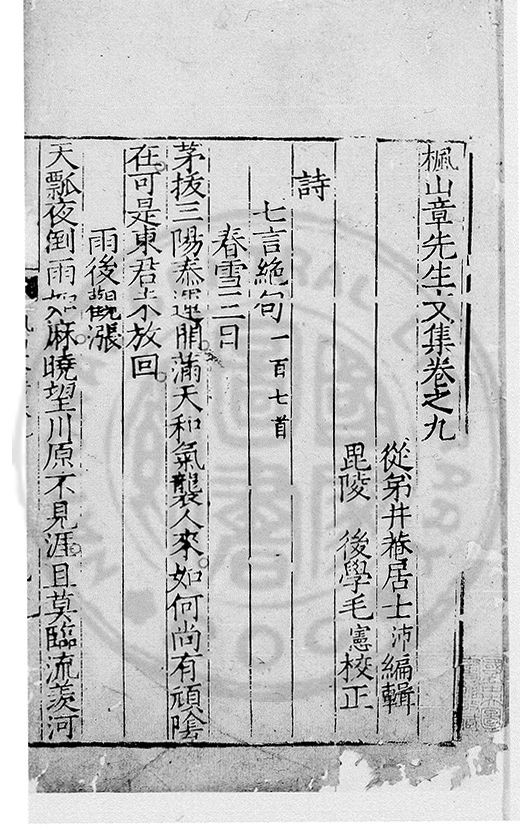 楓山章先生文集卷之九
從弟井菴居士沛編輯
毘陵 後學毛憲校正
詩
七言絶句一百七首
春雪三日
茅拔三陽泰運開滿天和氣襲人來如何尚有頑陰
在可是東君未放回
雨後觀漲
天瓢夜倒雨如麻曉望川原不見涯且莫臨流羨河